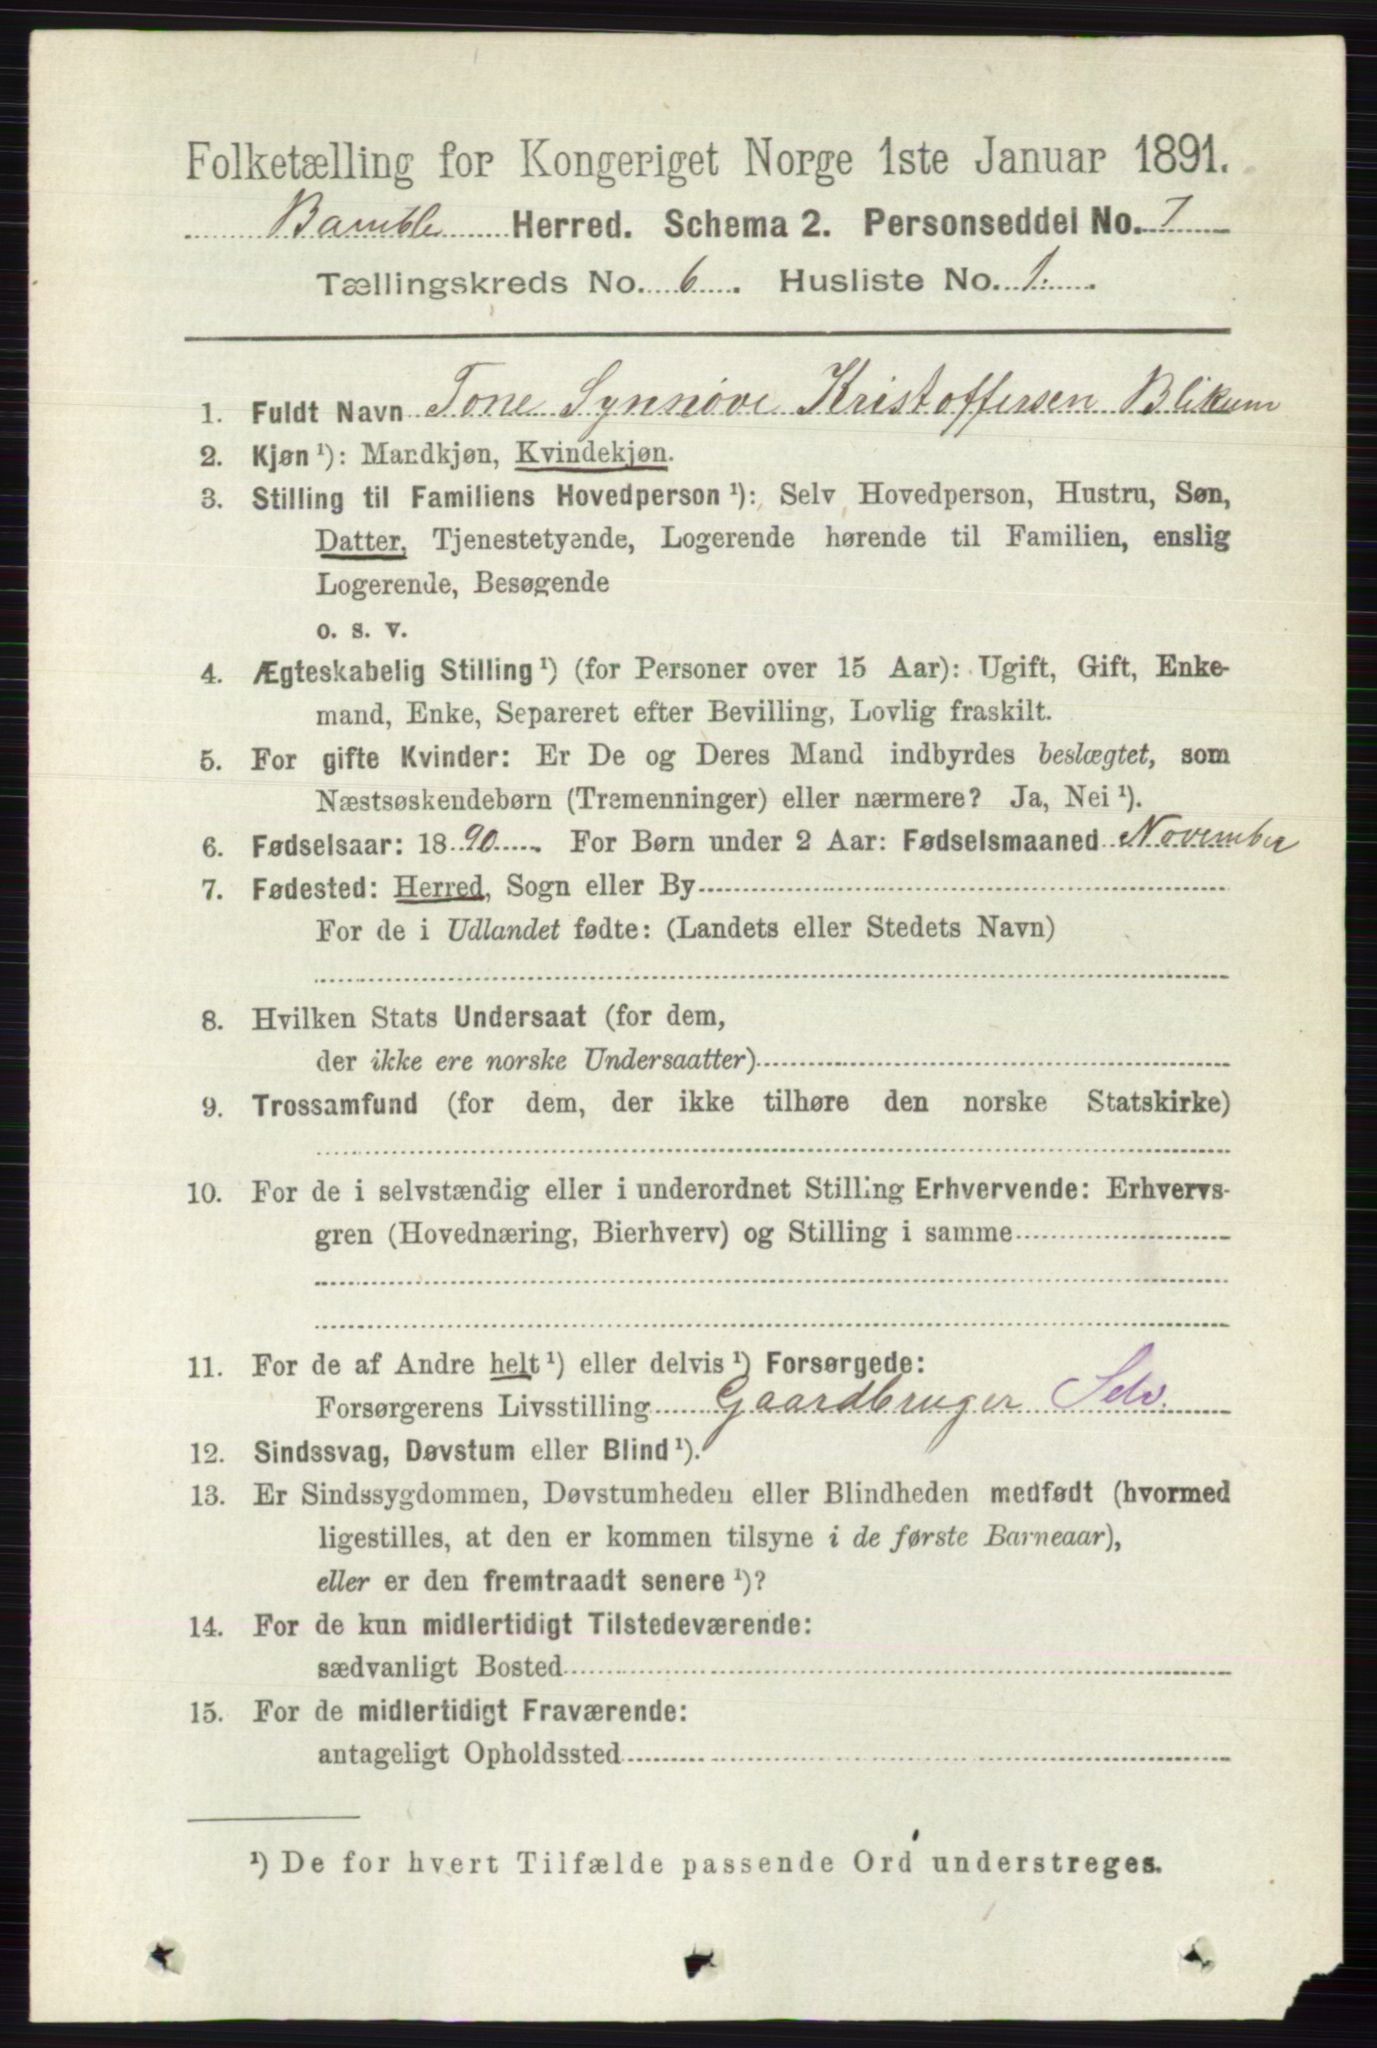 Folketælling for Kongeriget Norge 1ste Januar 1891.
Bamble Herred. Schema 2. Personseddel No. 7
Tællingskreds No. 6. Husliste No. 1.
1. Fuldt Navn Tone Synnøve Kristoffersen Blikum
2. Kjøn¹): Mandkjøn, Kvindekjøn.
3. Stilling til Familiens Hovedperson¹): Selv Hovedperson, Hustru, Søn,
Datter, Tjenestetyende, Logerende hørende til Familien, enslig
Logerende, Besøgende
o. s. v.
4. Ægteskabelig Stilling¹) (for Personer over 15 Aar): Ugift, Gift, Enke-
mand, Enke, Separeret efter Bevilling, Lovlig fraskilt.
5. For gifte Kvinder: Er De og Deres Mand indbyrdes beslægtet, som
Næstsøskendebørn (Tremenninger) eller nærmere? Ja, Nei¹).
6. Fødselsaar: 1890. For Børn under 2 Aar: Fødselsmaaned November
7. Fødested: Herred, Sogn eller By
For de i Udlandet fødte: (Landets eller Stedets Navn)
8. Hvilken Stats Undersaat (for dem,
der ikke ere norske Undersaatter)
9. Trossamfund (for dem, der ikke tilhøre den norske Statskirke)
10. For de i selvstændig eller i underordnet Stilling Erhvervende: Erhvervs-
gren (Hovednæring, Bierhverv) og Stilling i samme
11. For de af Andre helt¹) eller delvis¹) Forsørgede:
Forsørgerens Livsstilling Gaardbruger Selv.
12. Sindssvag, Døvstum eller Blind¹).
13. Er Sindssygdommen, Døvstumheden eller Blindheden medfødt (hvormed
ligestilles, at den er kommen tilsyne i de første Barneaar),
eller er den fremtraadt senere¹)?
14. For de kun midlertidigt Tilstedeværende:
sædvanligt Bosted
15. For de midlertidigt Fraværende:
antageligt Opholdssted
¹) De for hvert Tilfælde passende Ord understreges.